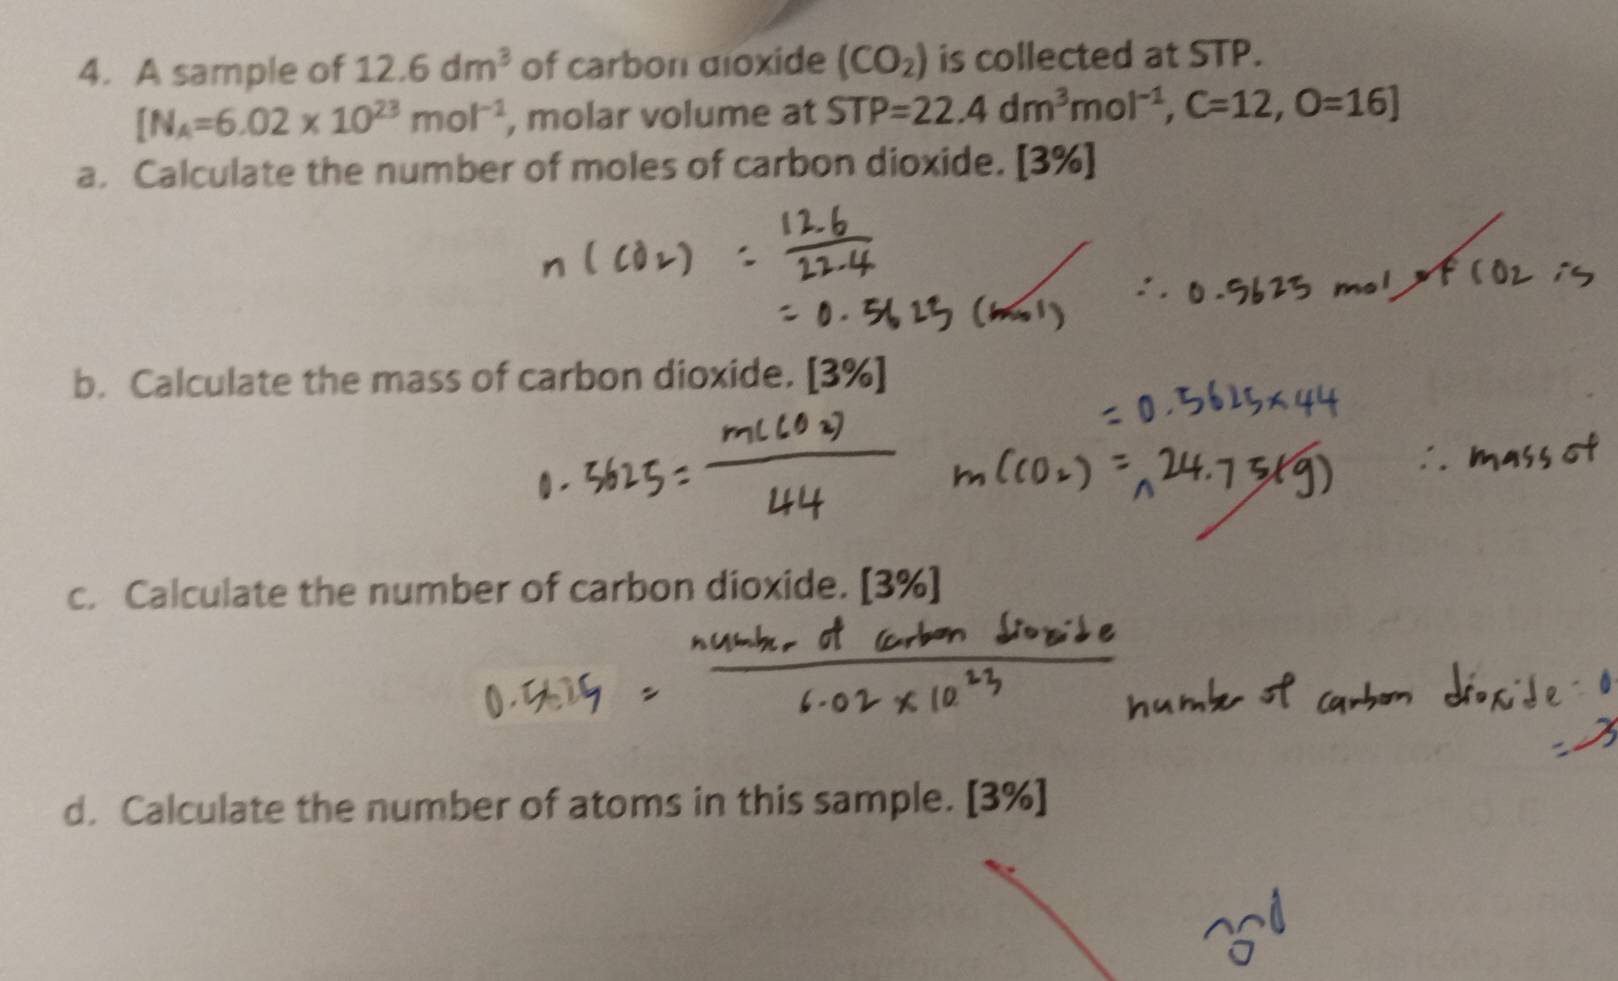 4. A sample of 12.6 dm³ of carbon dioxide (CO₂) is collected at STP.
[N_A=6.02 x 10²³ mol⁻¹, molar volume at STP=22.4 dm³mol⁻¹, C=12, O=16]
a. Calculate the number of moles of carbon dioxide. [3%]
n(CO₂) = 12.6 / 22.4
= 0.5625 (mol) ∴ 0.5625 mol of CO2 is
b. Calculate the mass of carbon dioxide. [3%]
= 0.5625×44
0.5625 = m(CO₂) / 44 m(CO₂) = 24.75(g) ∴ mass of
c. Calculate the number of carbon dioxide. [3%]
0.5625 = number of carbon dioxide / 6.02 × 10²³ number of carbon dioxide = 0.
= 3
d. Calculate the number of atoms in this sample. [3%]